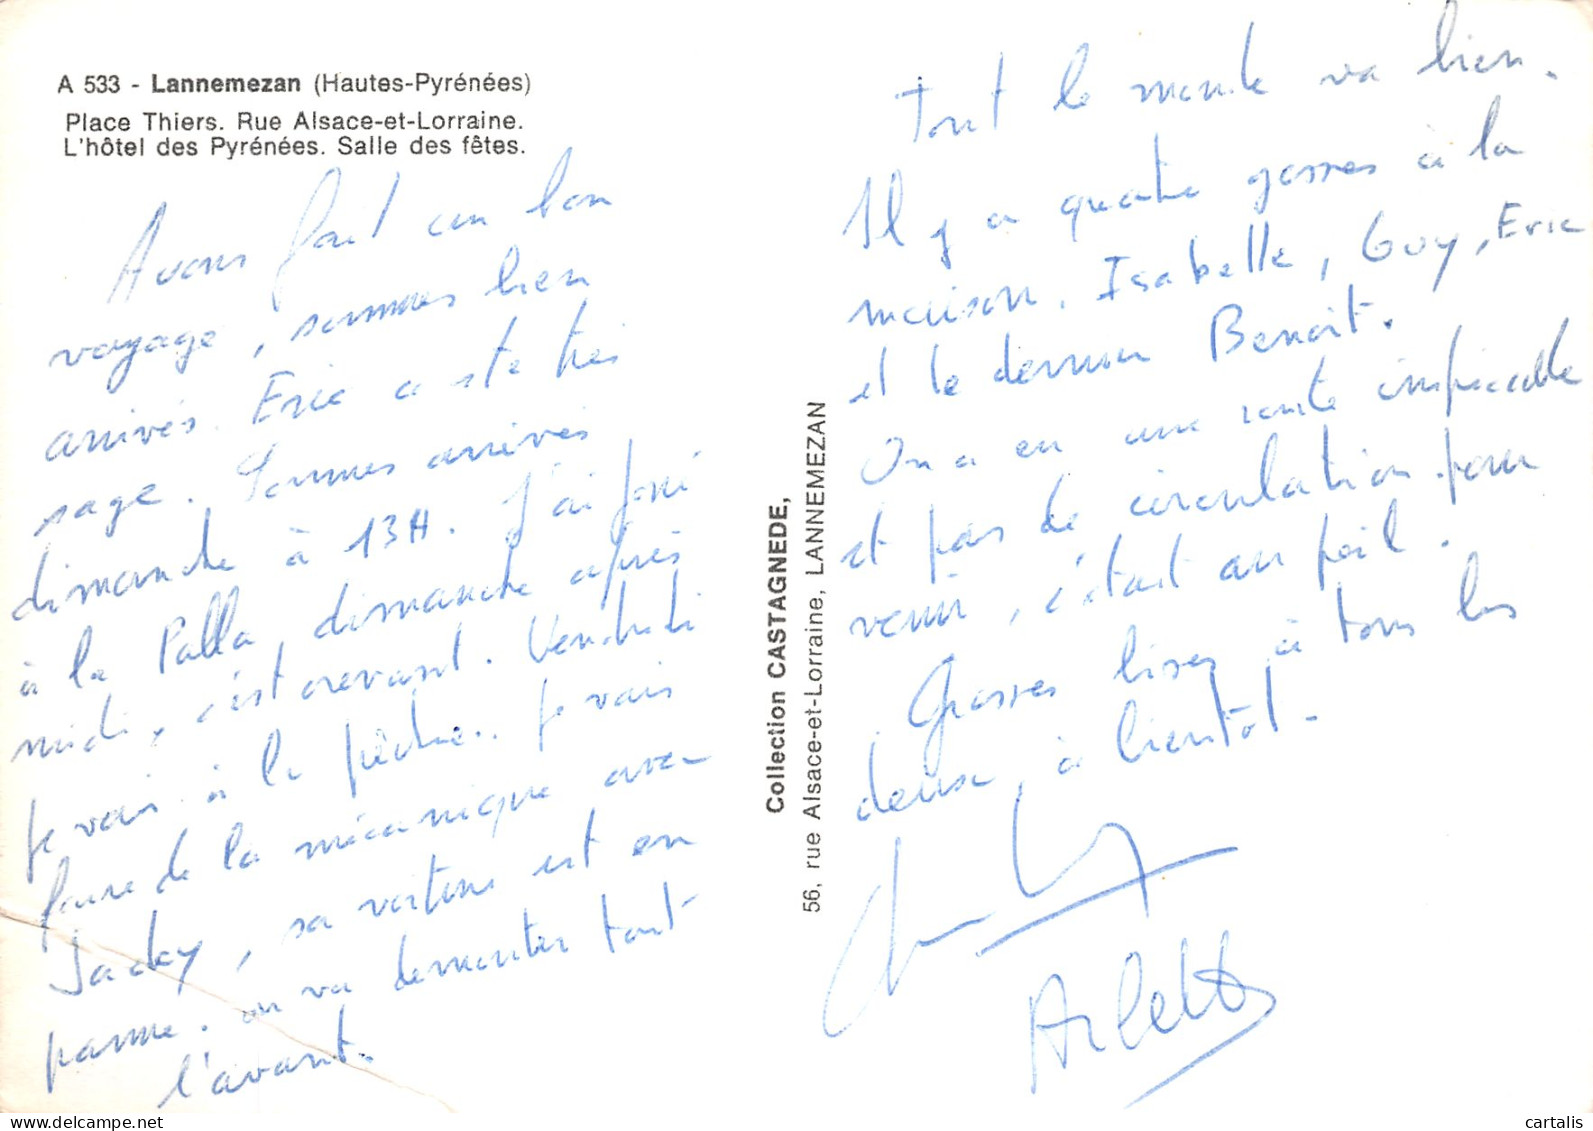 A 533 - Lannemezan (Hautes-Pyrénées)
Place Thiers. Rue Alsace-et-Lorraine.
L'hôtel des Pyrénées. Salle des fêtes.
Avons fait un bon
voyage, sommes bien
arrivés. Eric a été très
sage. Sommes arrivés
dimanche à 13H. J'ai joué
à la Palla, dimanche après
midi, c'est crevant. Vendredi
je vais à la pêche. Je vais
faire de la mécanique avec
Jacky, sa voiture est en
panne. on va démonter tout
l'avant.
Collection CASTAGNEDE,
56, rue Alsace-et-Lorraine, LANNEMEZAN
Tout le monde va bien.
Il y a quatre gosses à la
maison. Isabelle, Guy, Eric
et le dernier Benoit.
On a eu une route impeccable
et pas de circulation pour
venir, c'était au poil.
Grosses bises à tous les
deux, à bientôt.
Arlette
cartalis